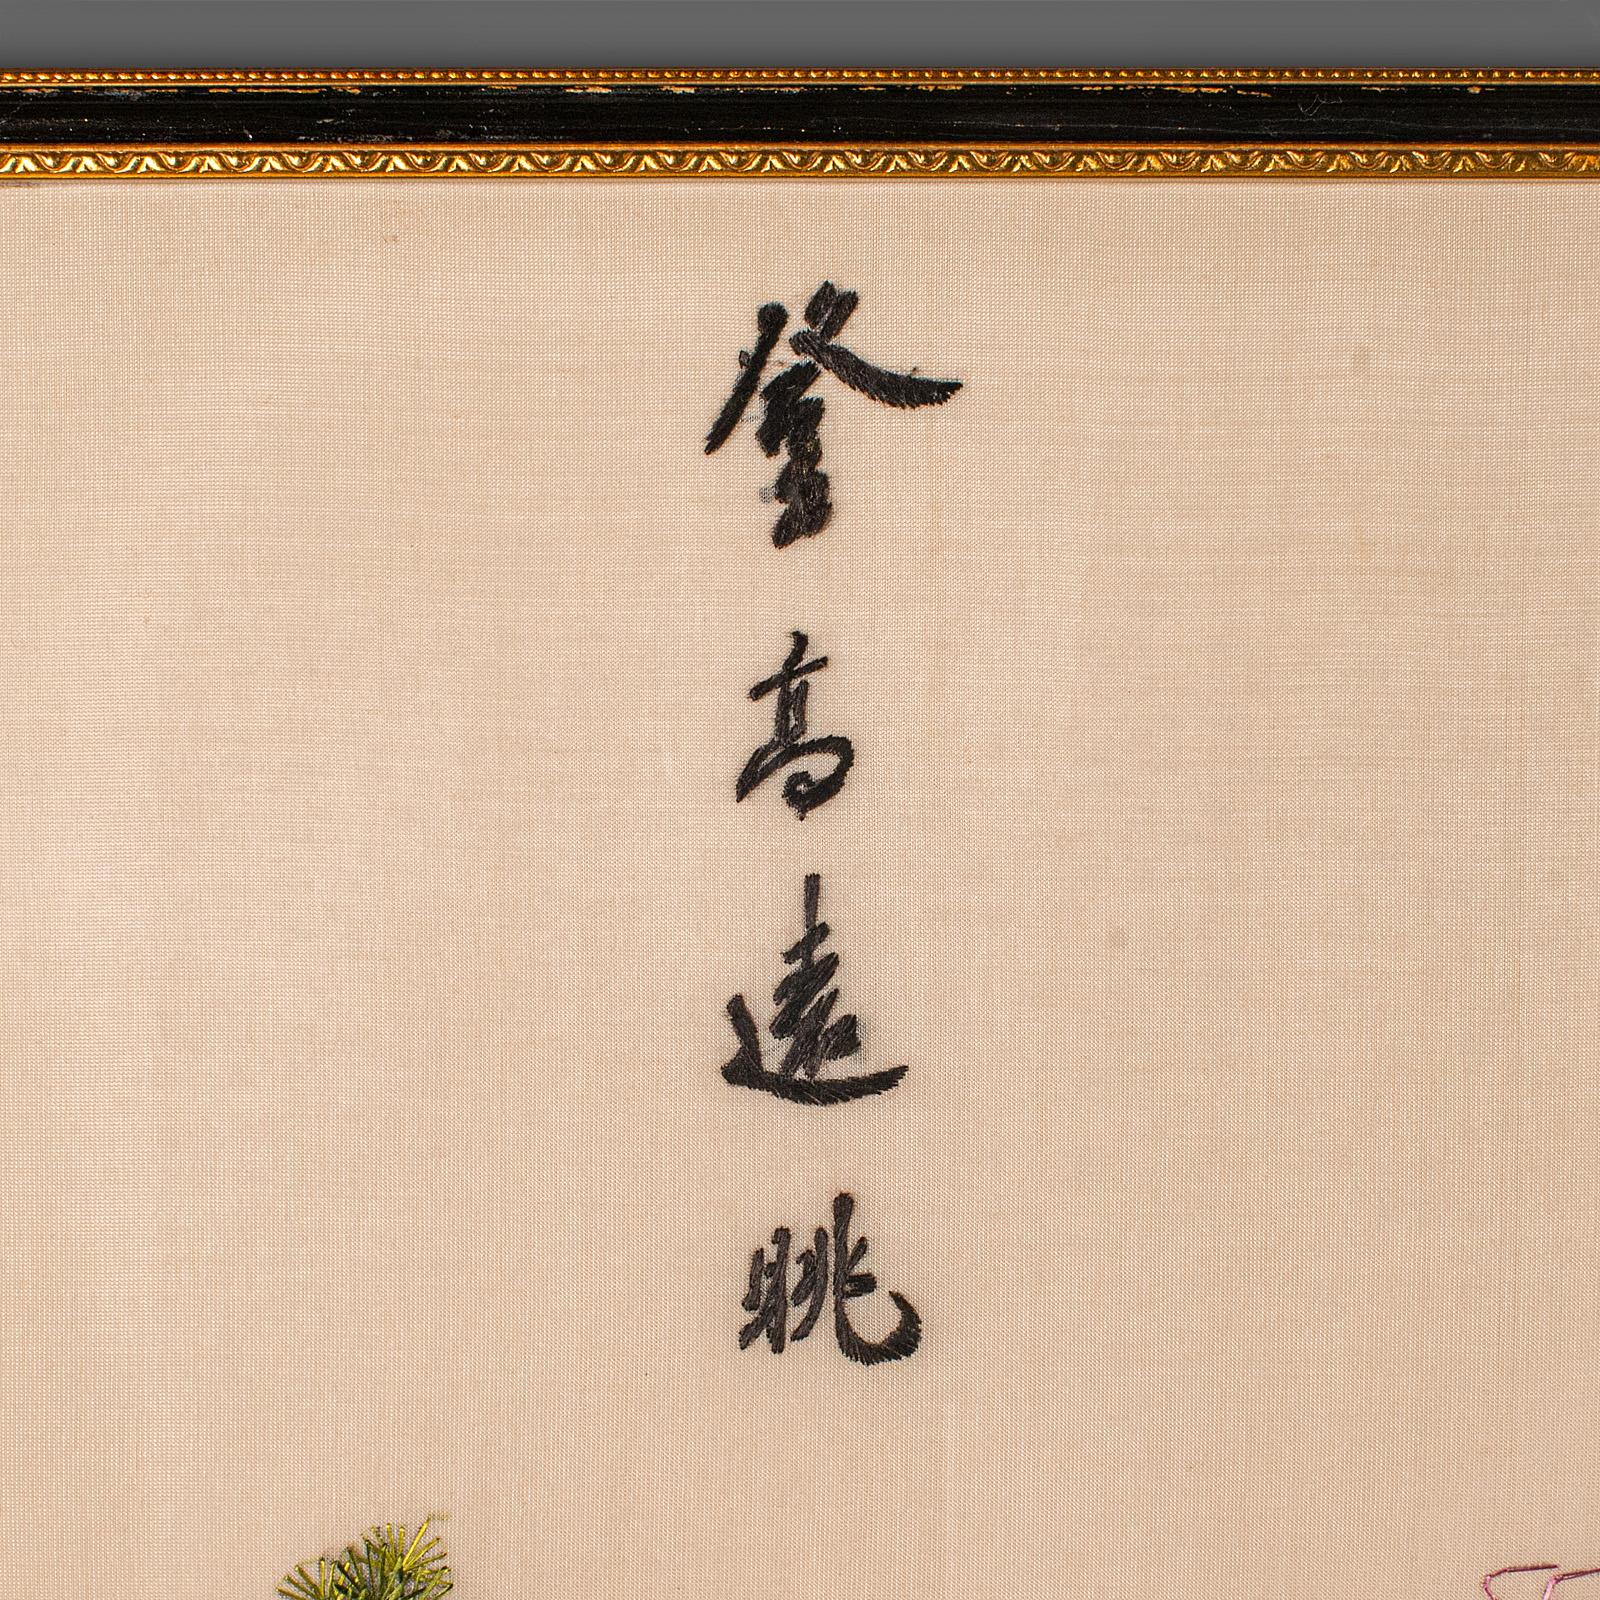 登高遠眺